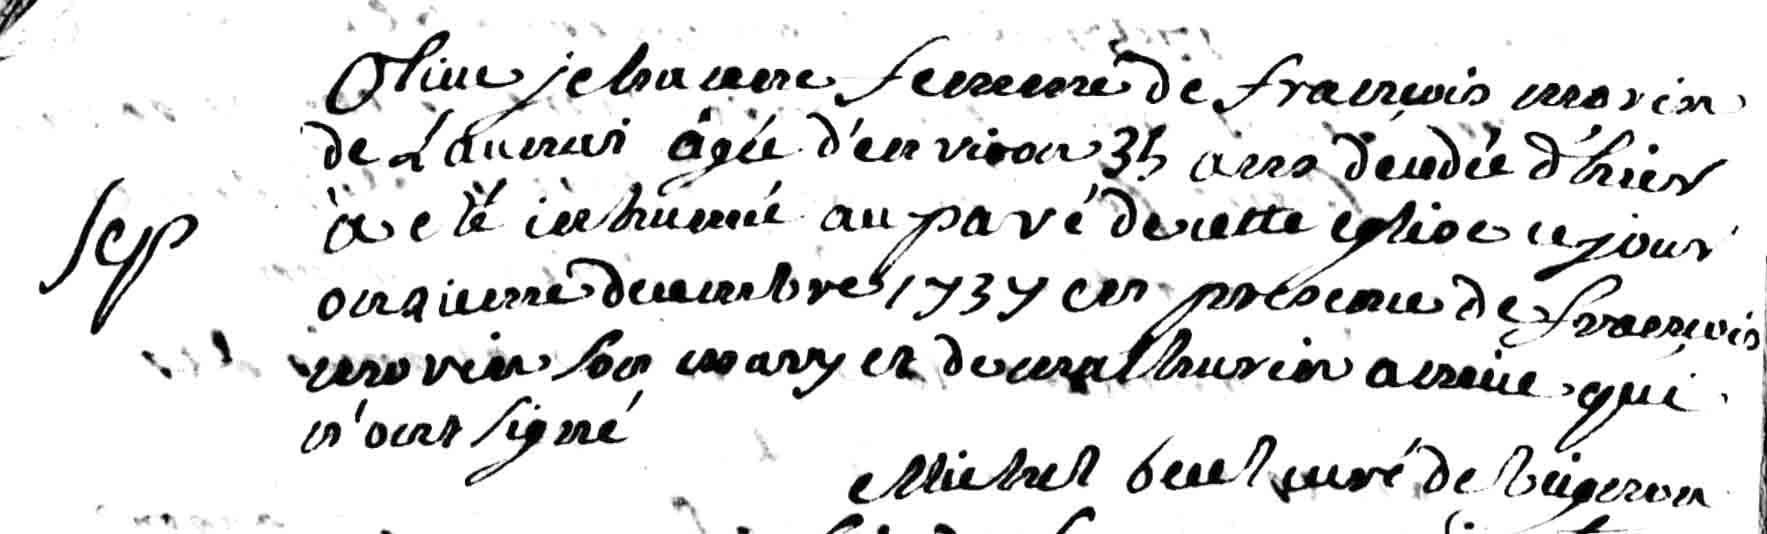 Olive jehanne femme de françois morin
de Launai âgée d'environ 35 ans décédée d'hier
a eté inhumée au pavé de cette eglise ce jour
Sep
onzieme decembre 1737 en presence de françois
morin son mary et de mathurin qui
n'ont signé
Michel curé de